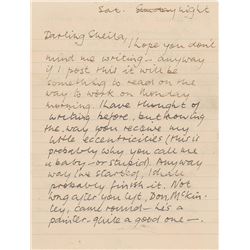 Sat. Sunday night
Darling Sheila,
I hope you don't
mind me writing — anyway
if I post this it will be
something to read on the
way to work on Monday
morning. I have thought of
writing before, but knowing
the way you receive my
little eccentricities (this is
probably why you call me
a baby – or stupid). Anyway
way (we started), I shall
probably finish it. Not
long after you left, Don, McKin-
ley, came round – he's a
painter – quite a good one –